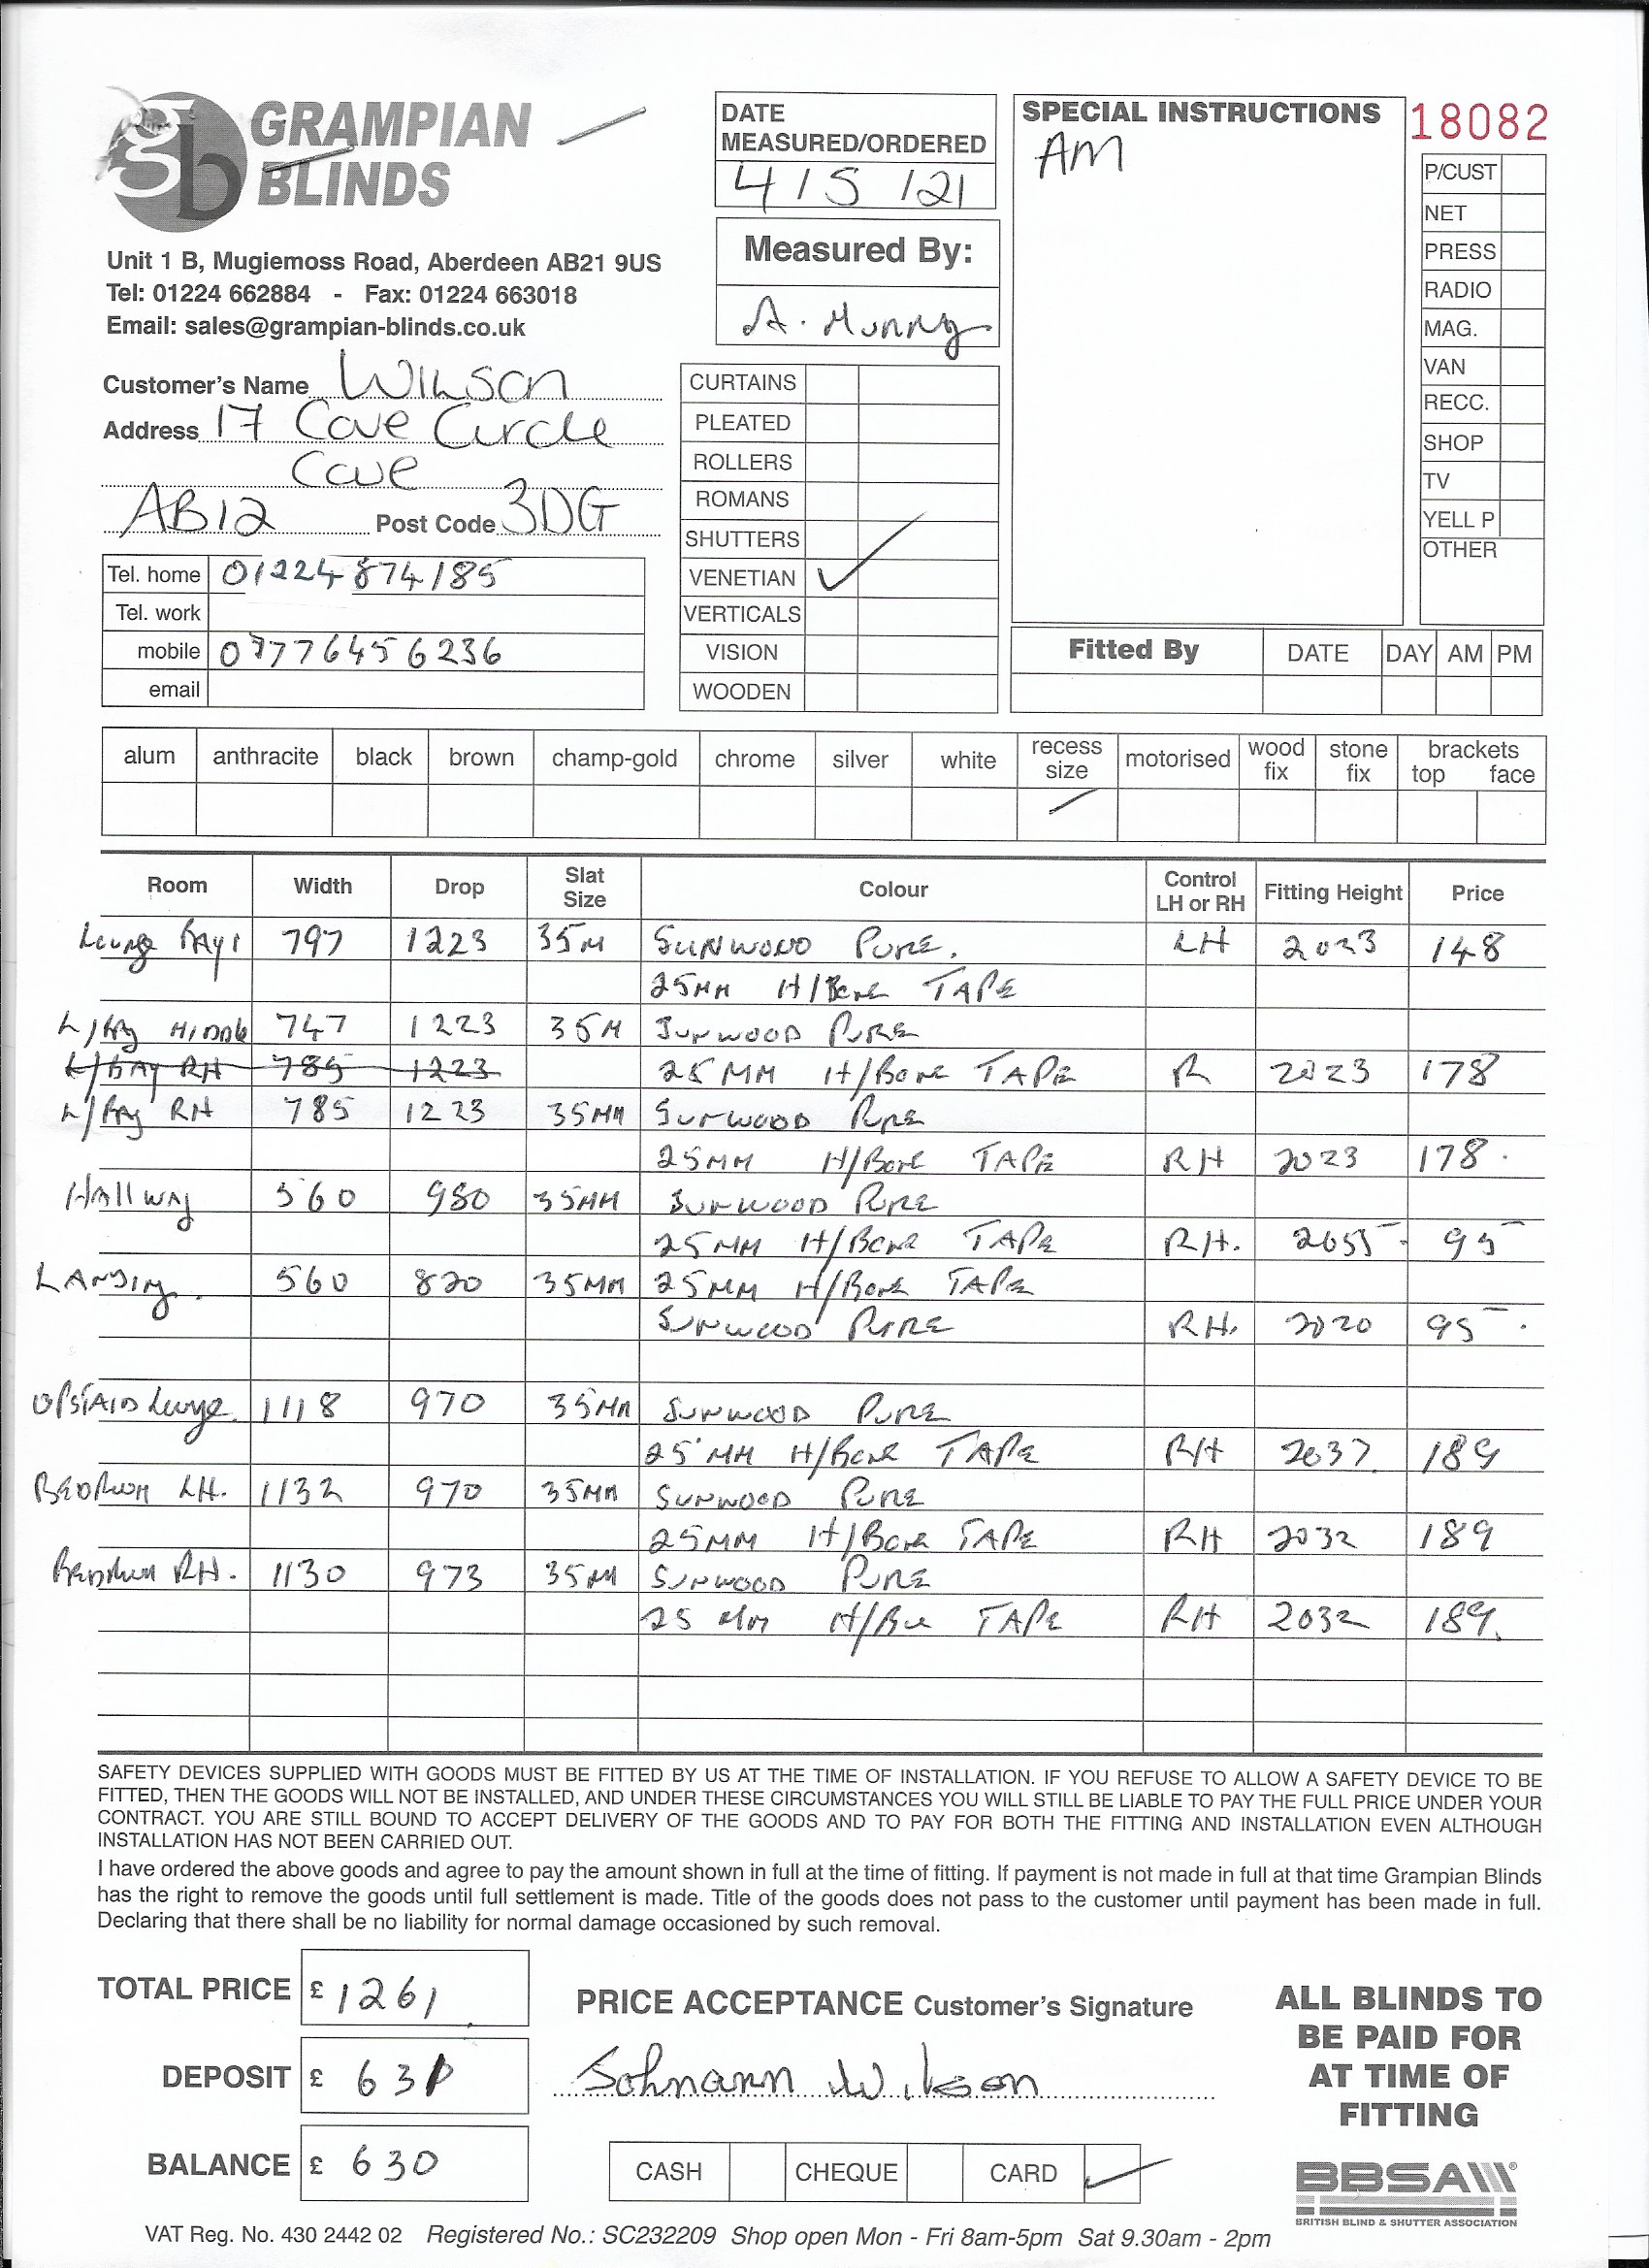 GRAMPIAN
BLINDS
Unit 1 B, Mugiemoss Road, Aberdeen AB21 9US
Tel: 01224 662884 - Fax: 01224 663018
Email: sales@grampian-blinds.co.uk
DATE
MEASURED/ORDERED
4 / 5 / 21
Measured By:
A. Murray
SPECIAL INSTRUCTIONS
AM
18082
P/CUST
NET
PRESS
RADIO
MAG.
VAN
RECC.
SHOP
TV
YELL P
OTHER
Customer's Name Wilson
Address 17 Cove Circle
Cove
AB12 Post Code 3DG
Tel. home 01224 874185
Tel. work
mobile 07776456236
email
CURTAINS
PLEATED
ROLLERS
ROMANS
SHUTTERS
VENETIAN ✓
VERTICALS
VISION
WOODEN
Fitted By DATE DAY AM PM
alum anthracite black brown champ-gold chrome silver white recess size motorised wood fix stone fix brackets top face
Room Width Drop Slat Size Colour Control LH or RH Fitting Height Price
Lounge Bay 1 797 1223 35M SUNWOOD PURE. LH 2023 148
25MM H/Bone TAPE
L/Bay Middle 747 1223 35M SUNWOOD PURE
L/BAY RH 785 1223 25 MM H/Bone TAPE R 2023 178
L/Bay RH 785 1223 35MM SUNWOOD PURE
25MM H/Bone TAPE RH 2023 178.
Hallway 560 980 35MM SUNWOOD PURE
25MM H/Bone TAPE RH. 2055 95
LANDING. 560 820 35MM 25MM H/Bone TAPE
SUNWOOD PURE RH. 2020 95
UPSTAIRS Lounge 1118 970 35MM SUNWOOD PURE
25MM H/Bone TAPE RH 2037 189
BEDROOM LH. 1132 970 35MM SUNWOOD PURE
25MM H/Bone TAPE RH 2032 189
Bedroom RH. 1130 973 35M SUNWOOD PURE
25 MM H/Bone TAPE RH 2032 189.
SAFETY DEVICES SUPPLIED WITH GOODS MUST BE FITTED BY US AT THE TIME OF INSTALLATION. IF YOU REFUSE TO ALLOW A SAFETY DEVICE TO BE
FITTED, THEN THE GOODS WILL NOT BE INSTALLED, AND UNDER THESE CIRCUMSTANCES YOU WILL STILL BE LIABLE TO PAY THE FULL PRICE UNDER YOUR
CONTRACT. YOU ARE STILL BOUND TO ACCEPT DELIVERY OF THE GOODS AND TO PAY FOR BOTH THE FITTING AND INSTALLATION EVEN ALTHOUGH
INSTALLATION HAS NOT BEEN CARRIED OUT.
I have ordered the above goods and agree to pay the amount shown in full at the time of fitting. If payment is not made in full at that time Grampian Blinds
has the right to remove the goods until full settlement is made. Title of the goods does not pass to the customer until payment has been made in full.
Declaring that there shall be no liability for normal damage occasioned by such removal.
TOTAL PRICE £ 1261
DEPOSIT £ 631
BALANCE £ 630
PRICE ACCEPTANCE Customer's Signature
Johnann Wilson
CASH CHEQUE CARD ✓
ALL BLINDS TO
BE PAID FOR
AT TIME OF
FITTING
BBSA
BRITISH BLIND & SHUTTER ASSOCIATION
VAT Reg. No. 430 2442 02 Registered No.: SC232209 Shop open Mon - Fri 8am-5pm Sat 9.30am - 2pm